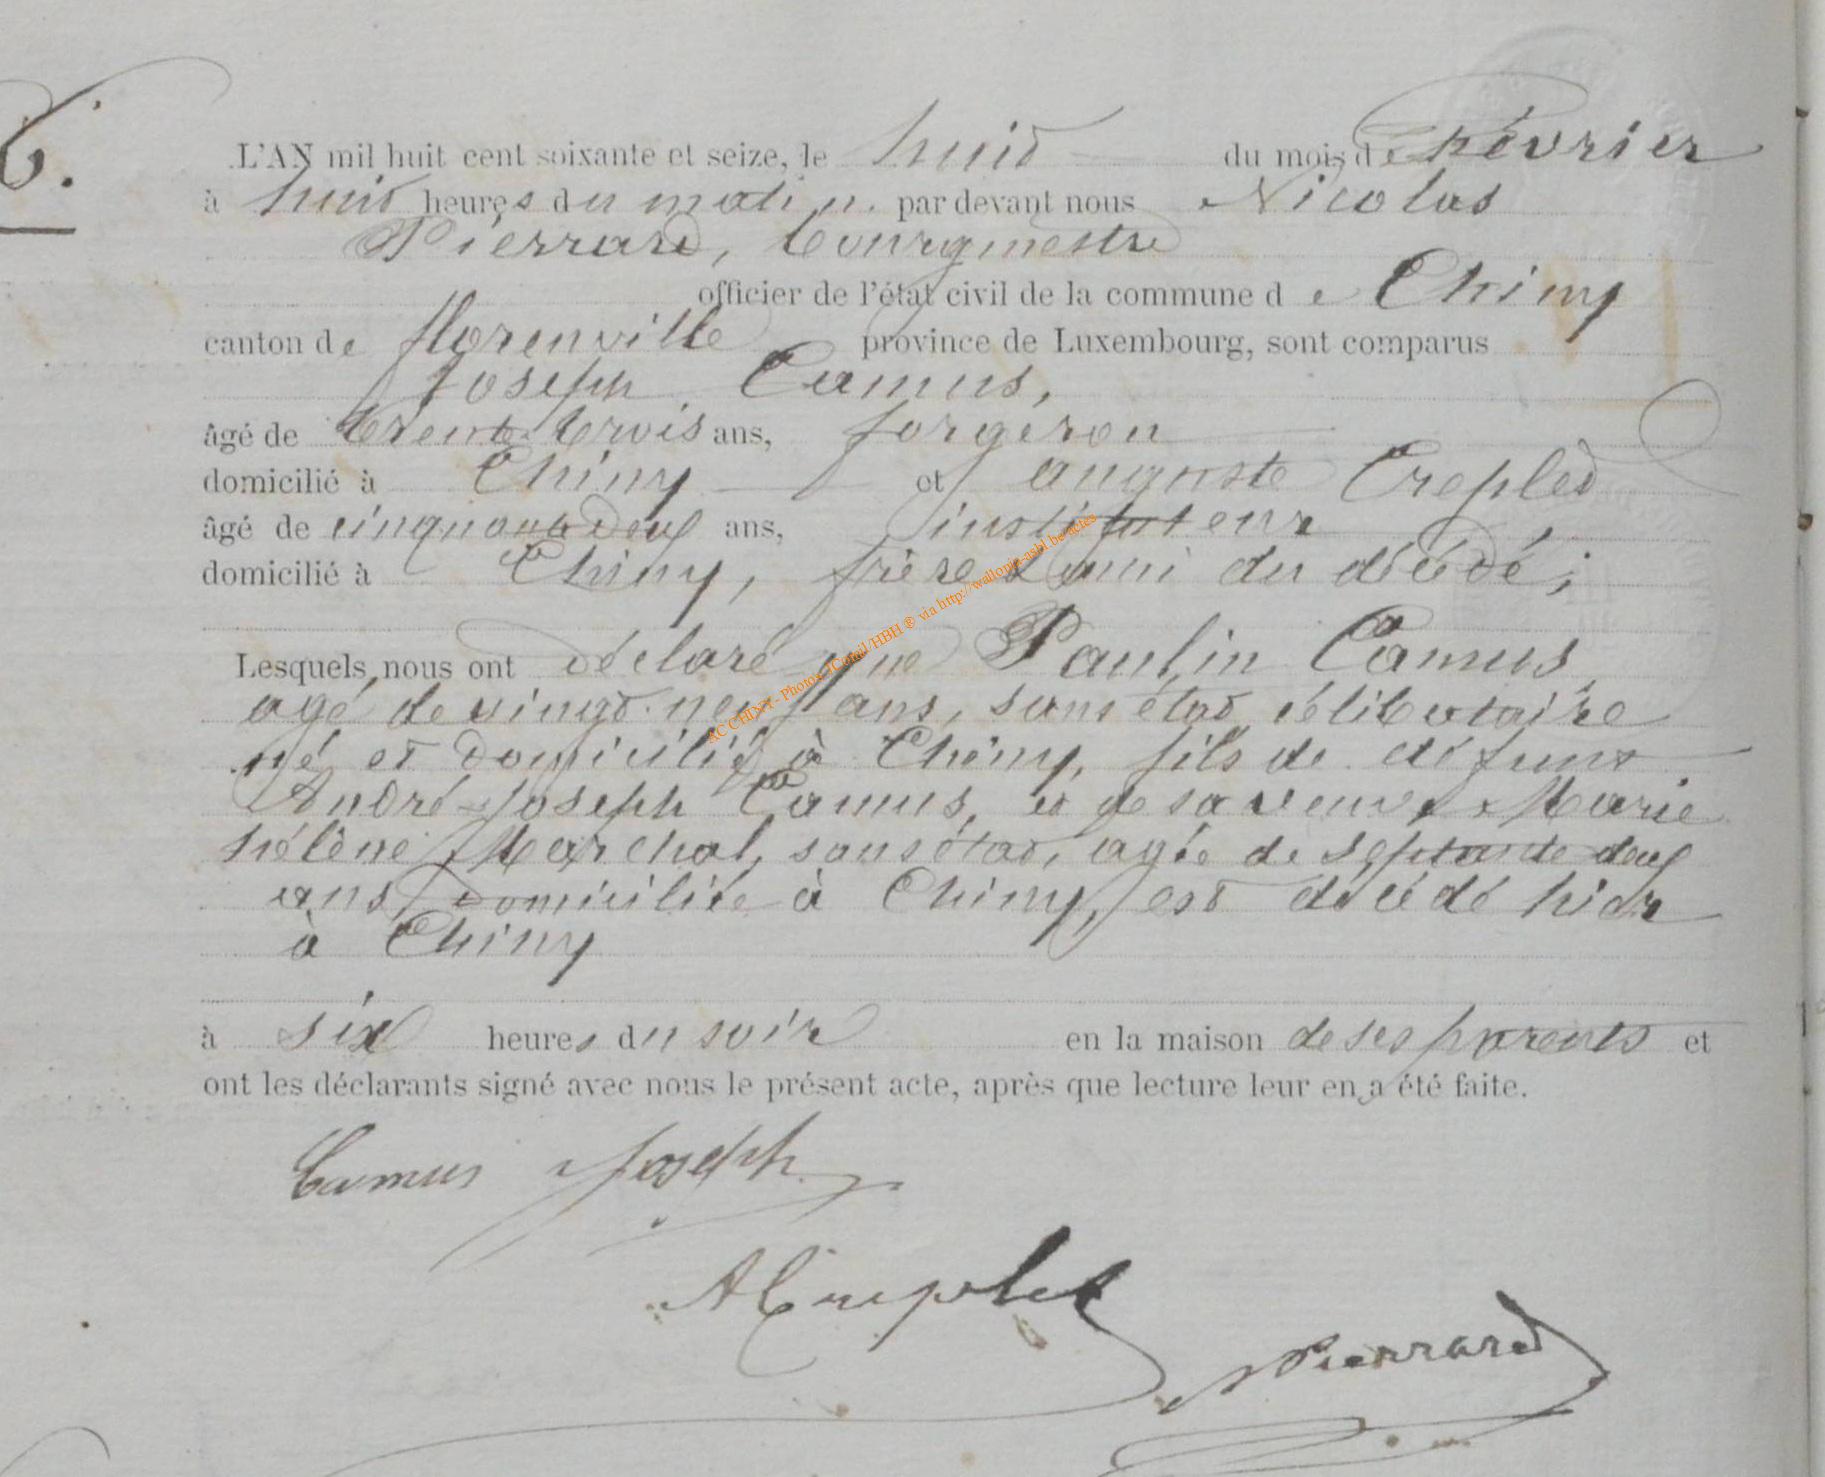 6.
L'AN mil huit cent soixante et seize, le huit du mois de février
à huit heures du matin. par devant nous Nicolas
Pierrard, bourgmestre
officier de l'état civil de la commune de Chiny
canton de florenville province de Luxembourg, sont comparus
Joseph Camus,
âgé de trente trois ans, forgeron
domicilié à Chiny et auguste Creplet
âgé de cinquante deux ans, instituteur
domicilié à Chiny, frère & ami du décédé;
Lesquels nous ont déclaré que Paulin Camus
agé de vingt-neuf ans, sans état, célibataire
né et domicilié à Chiny, fils de défunt
André-Joseph Camus, et de sa veuve Marie
hélène Marchal, sans état, agée de septante deux
ans, domiciliée à Chiny, est décédé hier
à Chiny
à six heures du soir en la maison de ses parents et
ont les déclarants signé avec nous le présent acte, après que lecture leur en a été faite.
Camus Joseph
A Creplet
N Pierrard
AC CHINY - Photos JComil/HBH ® via http://wallonia-asbl.be/actes